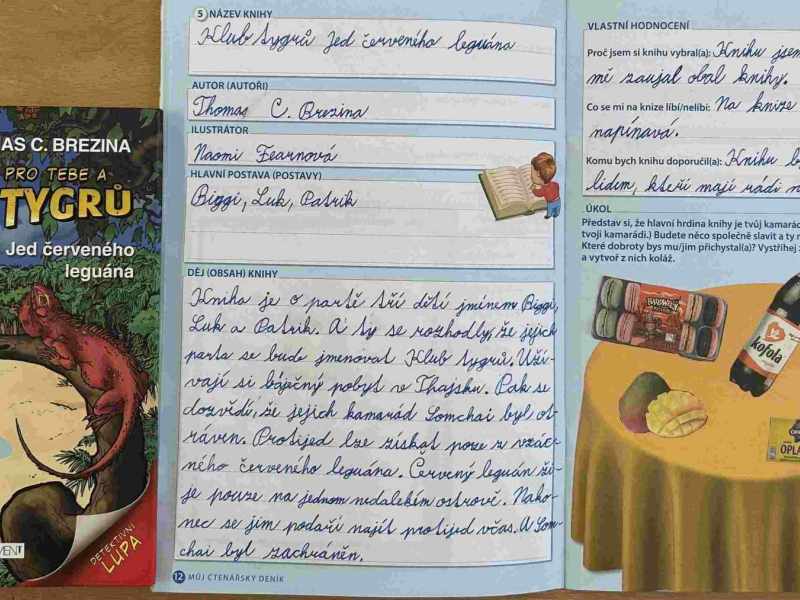 AS C. BREZINA
PRO TEBE A
TYGRŮ
Jed červeného
leguána
DETEKTIVNÍ
LUPA
5 NÁZEV KNIHY
Klub tygrů Jed červeného leguána
AUTOR (AUTOŘI)
Thomas C. Brezina
ILUSTRÁTOR
Naomi Fearnová
HLAVNÍ POSTAVA (POSTAVY)
Biggi, Luk, Patrik
DĚJ (OBSAH) KNIHY
Kniha je o partě tří dětí jménem Biggi,
Luk a Patrik. A ty se rozhodly, že jejich
parta se bude jmenovat Klub tygrů. Uží-
vají si báječný pobyt v Thajsku. Pak se
dozvědí, že jejich kamarád Somchai byl ot-
ráven. Protijed lze získat poze z vzác-
ného červeného leguána. Červený leguán ži-
je pouze na jednom nedalekém ostrově. Nako-
nec se jim podaří najít protijed včas. A Som-
chai byl zachráněn.
12 MŮJ ČTENÁŘSKÝ DENÍK
VLASTNÍ HODNOCENÍ
Proč jsem si knihu vybral(a): Knihu jsem
mě zaujal obal knihy.
Co se mi na knize líbí/nelíbí: Na knize
napínavá.
Komu bych knihu doporučil(a): Knihu
lidem, kteří mají rádi
ÚKOL
Představ si, že hlavní hrdina knihy je tvůj kamarád
tvoji kamarádi.) Budete něco společně slavit a ty
Které dobroty bys mu/jim přichystal(a)? Vystřihej
a vytvoř z nich koláž.
kofola
OPLA